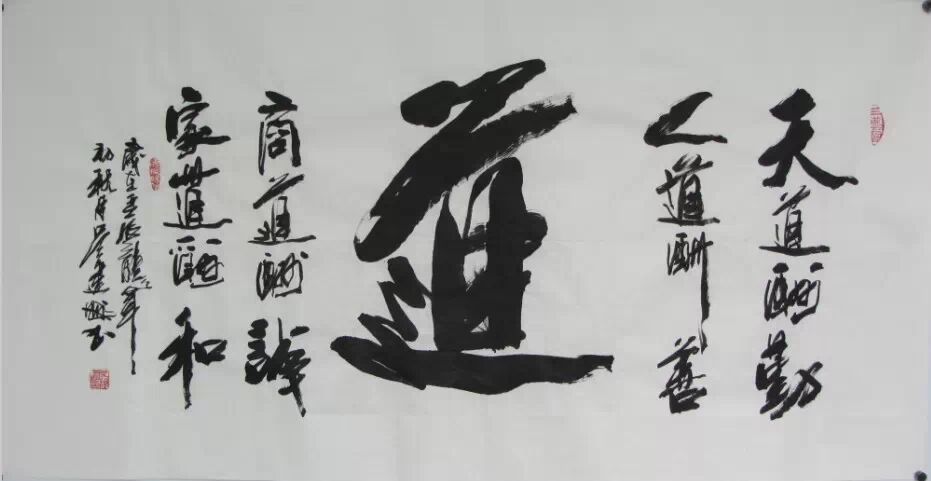 天道酬勤
人道酬善
道
商道酬誠
家道酬和
歲在壬辰龍年
初秋月
書